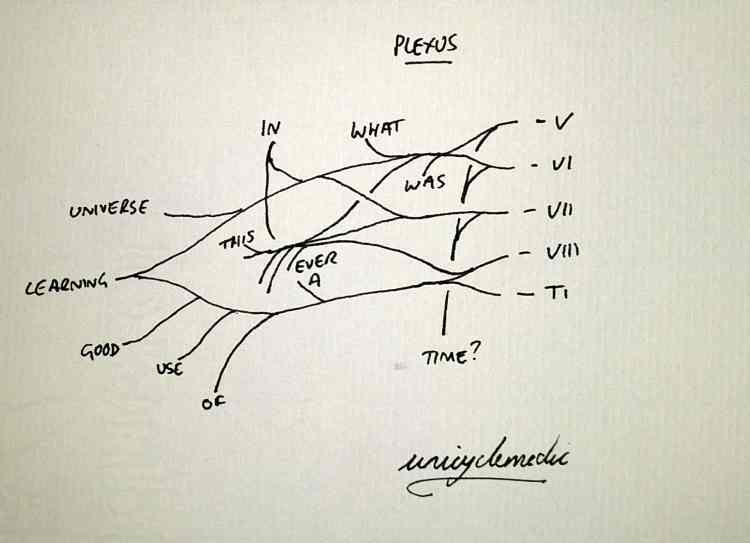 PLEXUS
IN
WHAT
- V
WAS
- VI
UNIVERSE
- VII
THIS
EVER
A
- VIII
LEARNING
- TI
GOOD
USE
TIME?
OF
unicyclemedic